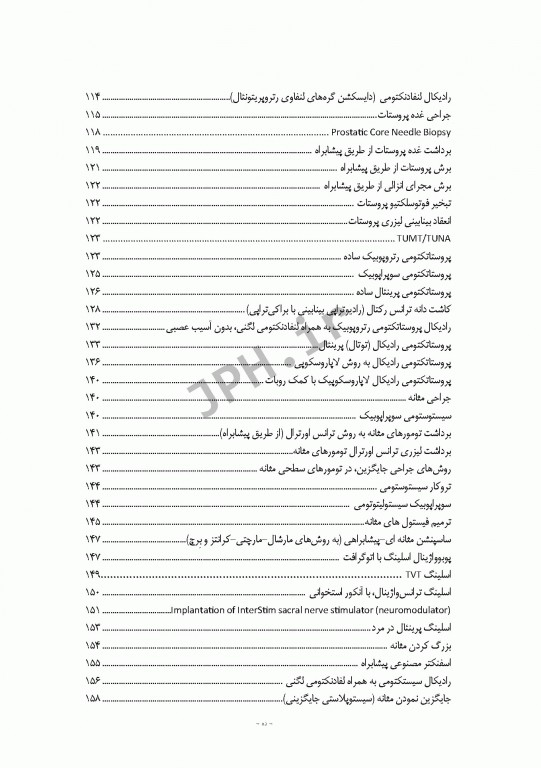 رادیکال لنفادنکتومی (دایسکشن گره‌های لنفاوی رتروپریتونئال) ۱۱۴
جراحی غده پروستات ۱۱۵
Prostatic Core Needle Biopsy ۱۱۸
برداشت غده پروستات از طریق پیشابراه ۱۱۹
برش پروستات از طریق پیشابراه ۱۲۱
برش مجرای انزالی از طریق پیشابراه ۱۲۲
تبخیر فوتوسلکتیو پروستات ۱۲۲
انعقاد بینابینی لیزری پروستات ۱۲۲
TUMT/TUNA ۱۲۳
پروستاتکتومی رتروپوبیک ساده ۱۲۳
پروستاتکتومی سوپراپوبیک ۱۲۵
پروستاتکتومی پرینئال ساده ۱۲۶
کاشت دانه ترانس رکتال (رادیوتراپی بینابینی با براکی‌تراپی) ۱۲۸
رادیکال پروستاتکتومی رتروپوبیک به همراه لنفادنکتومی لگنی، بدون آسیب عصبی ۱۳۲
پروستاتکتومی رادیکال (توتال) پرینئال ۱۳۳
پروستاتکتومی رادیکال به روش لاپاروسکوپی ۱۳۶
پروستاتکتومی رادیکال لاپاروسکوپیک با کمک روبات ۱۴۰
جراحی مثانه ۱۴۰
سیستوستومی سوپراپوبیک ۱۴۰
برداشت تومورهای مثانه به روش ترانس اورترال (از طریق پیشابراه) ۱۴۱
برداشت لیزری ترانس اورترال تومورهای مثانه ۱۴۳
روش‌های جراحی جایگزین، در تومورهای سطحی مثانه ۱۴۳
تروکار سیستوستومی ۱۴۴
سوپراپوبیک سیستولیتوتومی ۱۴۴
ترمیم فیستول های مثانه ۱۴۵
ساسپنشن مثانه ای-پیشابراهی (به روش‌های مارشال-مارچتی-کرانتز و برچ) ۱۴۷
پوبوواژینال اسلینگ با اتوگرافت ۱۴۷
اسلینگ TVT ۱۴۹
اسلینگ ترانس‌واژینال، با آنکور استخوانی ۱۵۰
Implantation of InterStim sacral nerve stimulator (neuromodulator) ۱۵۱
اسلینگ پرینئال در مرد ۱۵۳
بزرگ کردن مثانه ۱۵۴
اسفنکتر مصنوعی پیشابراه ۱۵۵
رادیکال سیستکتومی به همراه لفادنکتومی لگنی ۱۵۶
جایگزین نمودن مثانه (سیستوپلاستی جایگزینی) ۱۵۸
JPH.ir